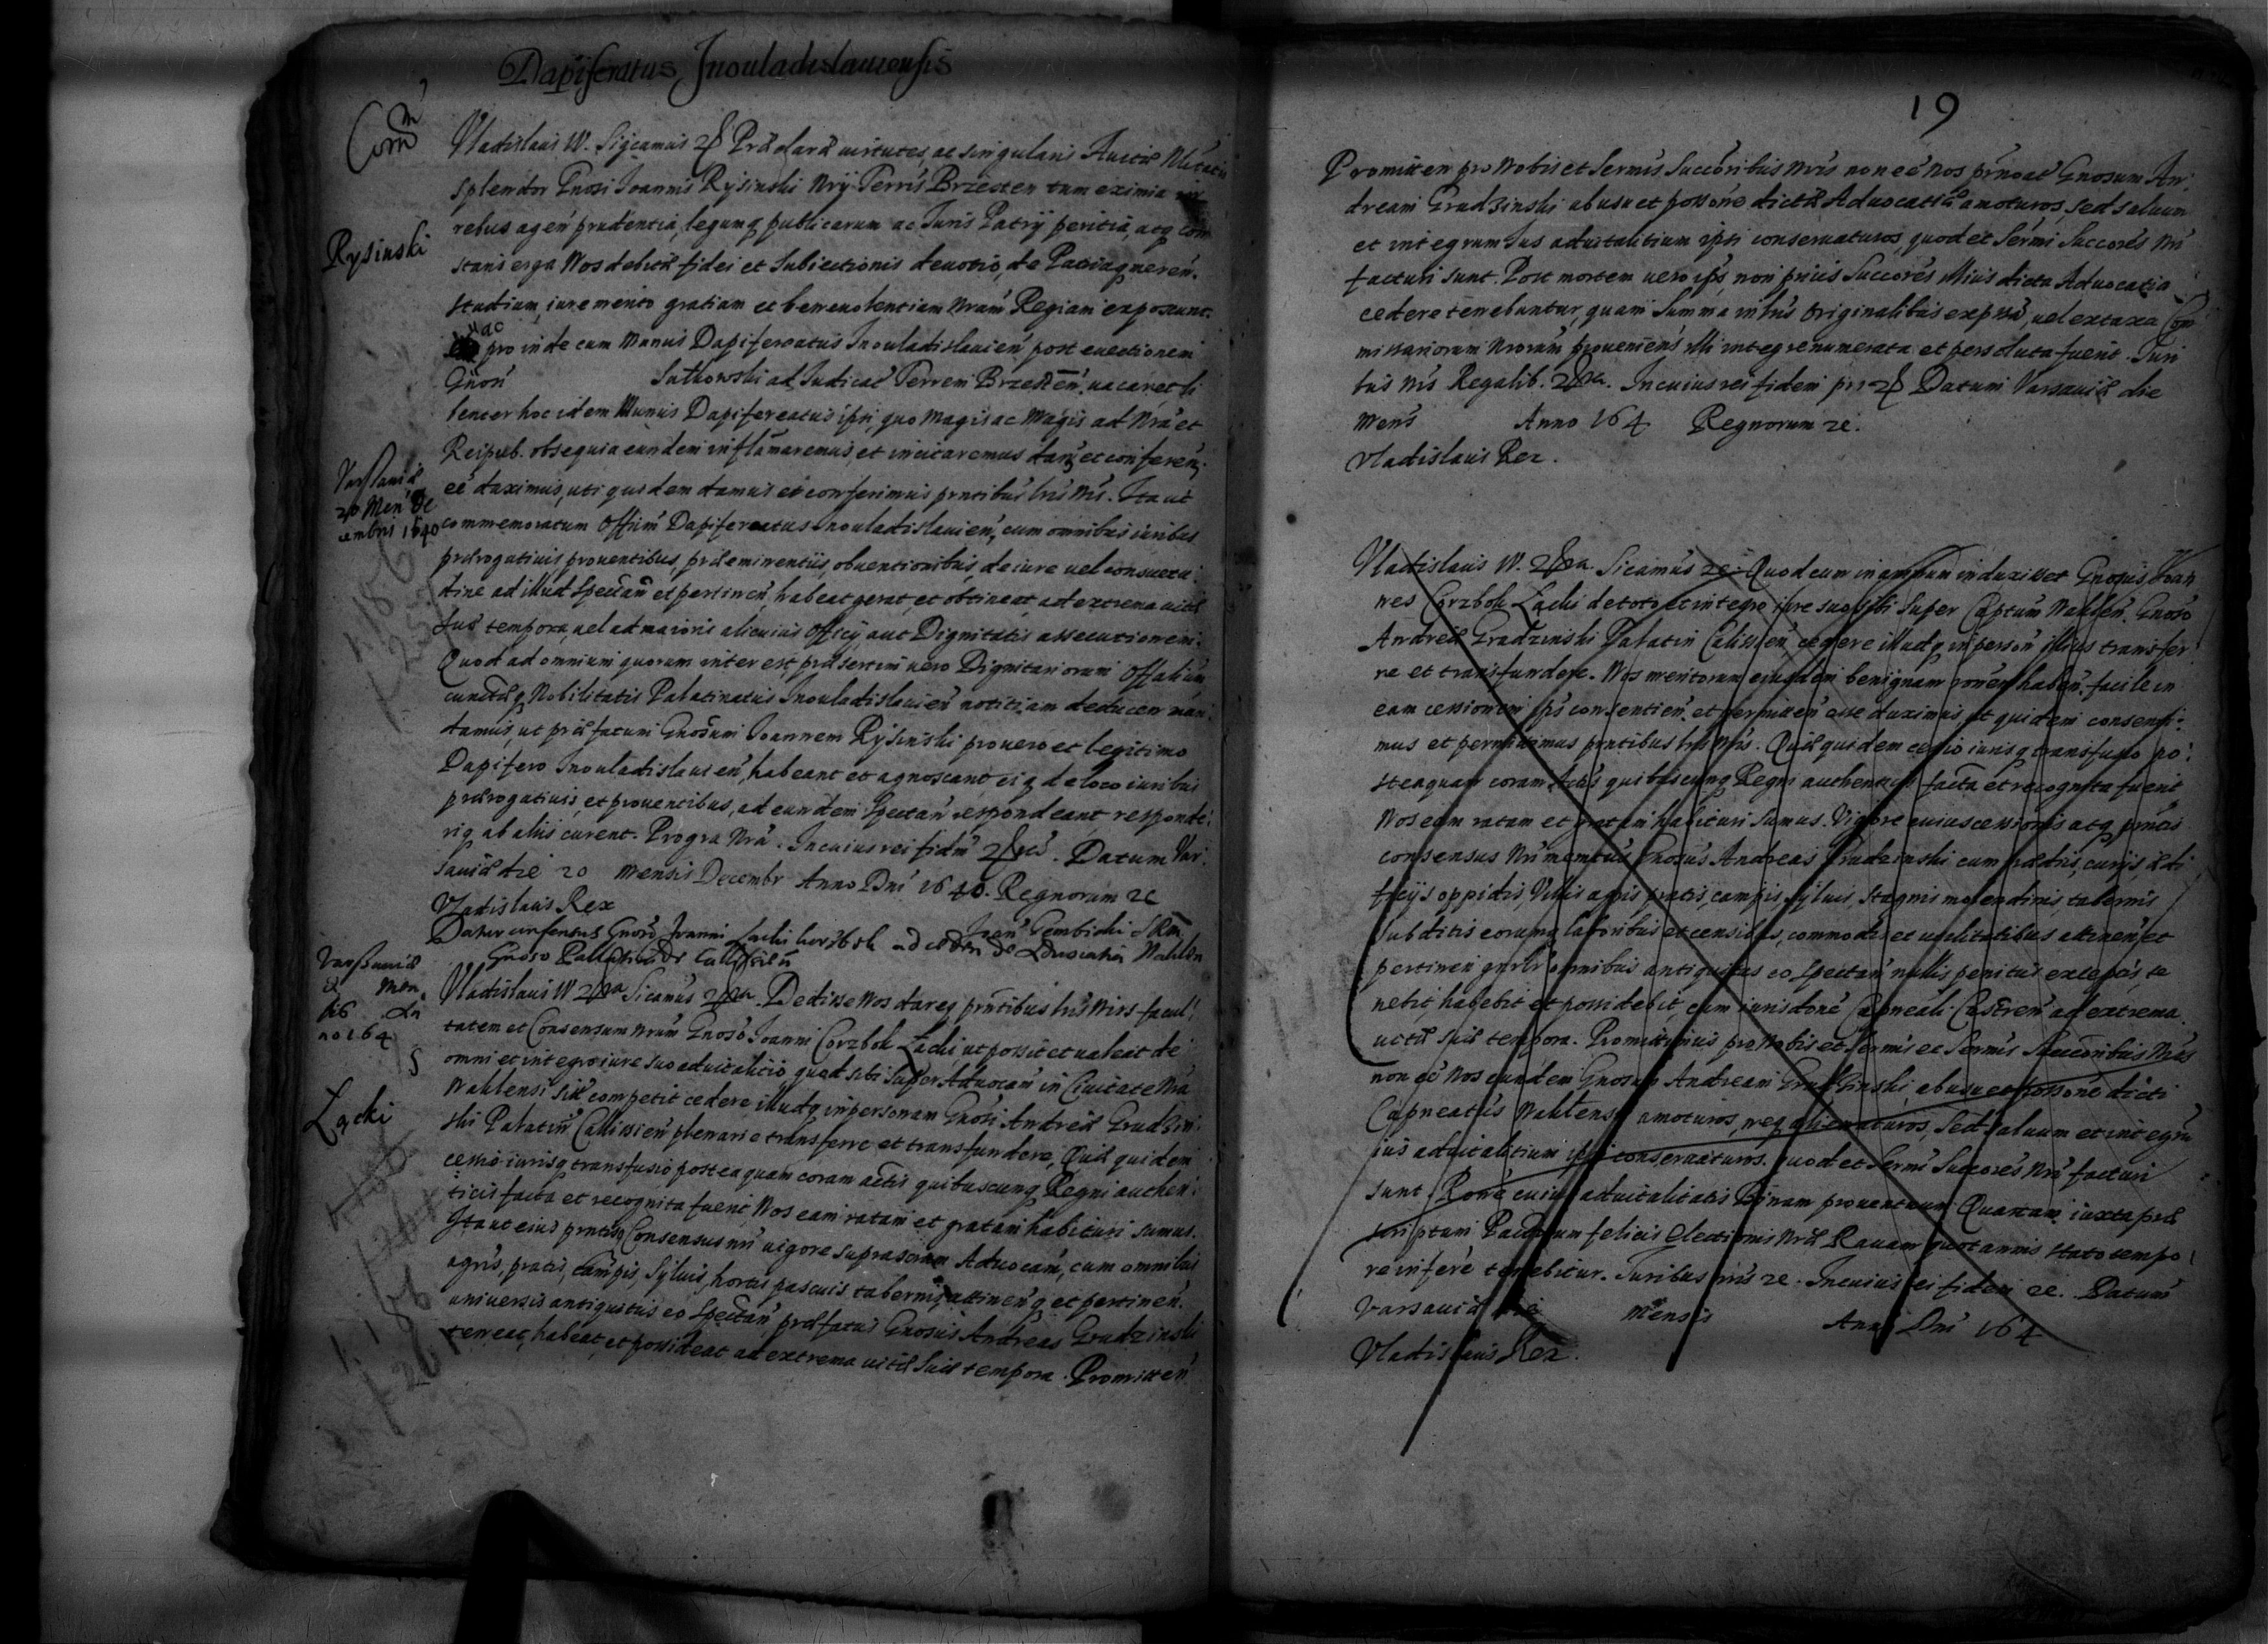 Dapiferatus Inouladislauiensis
Corr
Vladislaus IV. Sigcamus Præclaræ uirtutes, ac singularis Auitæ
splendor Gnosi Joannis Rysinski Nrij Terris Brzesten tum eximia in
rebus agen prudentia, legumq publicarum ac Juris Patrij peritia, atq con
Rysinski
stans erga Nos debitæ fidei et Subiectionis deuotio, de Patriaq meren.
studium, iure merito gratiam et beneuolentiam Nram Regiam exposcunt.
Hac
proinde cum Munus Dapiferatus Inouladislauien post euectionem
Gnosi Sutkowski ad Judicat Terren Brzesten. uacaret li
benter hoc idem Munus Dapiferatus ipsi, quo magis ac magis ad Nra et
Reipub. obsequia eundem inflamaremus, et incitaremus danz et conferenz.
Varsauiæ
20 Men De
cembris 1640
eê duximus, uti quidem damus et conferimus pntibus lris Nris. Ita ut
commemoratum Offium Dapiferatus Inouladislauien, cum omnibus iuribus
prærogatiuis, prouentibus, præeminentijs, obuentionibus, de iure uel consuetu:
dine ad illud Spectan et pertinen, habeat, gerat, et obtineat, ad extrema uitæ
suæ tempora, uel ad maioris alicuius Officij aut Dignitatis assecutionem.
Quod ad omnium quorum interest, præsertim uero Dignitariorum Offalium
cunctæq Nobilitatis Palatinatus Inouladislauien notitiam deducen man:
damus, ut præfatum Gnosum Joannem Rysinski pro uero et legitimo
Dapifero Inouladislauien, habeant et agnoscant, eiq de loco iuribus
prærogatiuis, et prouentibus, ad eundem Spectan respondeant responde:
riq ab alijs curent. Pro gra Nra. In cuius rei fidm. Datum Var:
sauiæ die 20 mensis Decembr Anno Dni 1640. Regnorum 2c
Vladislaus Rex
Datur consensus Gnoso Joanni Lacki Corzbok ad cedendum de Aduocatia Wahlen
Gnoso Palatino Calissien
Varsauiæ
Men
sis An
no 164
Vladislaus IV Sicamus. Dedisse Nos dareq pntibus lris Nris facul:
tatem et Consensum Nrum Gnoso Joanni Corzbok Lacki ut possit et ualeat de
omni et integro iure suo aduitalitio, quod sibi super Aduocam in Ciuitate Nra
Lacki
Wahlensi sitæ competit cedere, illudq in personam Gnosi Andreæ Grudzin:
ski Palatin Calissien plenarie transferre et transfundere, Quæ quidem
cessio iurisq transfusio posteaquam coram actis quibuscunq Regni authen:
ticis facta et recognita fuerit, Nos eam ratam et gratam habituri sumus.
Ita ut eius pntisq Consensus nri uigore suprascriptam Aduocam, cum omnibus
agris, pratis, campis, Syluis, hortis pascuis tabernis, attinenq et pertinen.
uniuersis antiquitus eo Spectan, præfatus Gnosus Andreas Grudzinski
teneat, habeat, et possideat ad extrema uitæ suæ tempora. Promitten
19
Promitten pro Nobis et Sermis Succoribus Nris non eê Nos prnoat Gnosum An:
dream Grudzinski ab usu et possone dictæ Aduocatiæ amoturos, sed saluum
et integrum Jus aduitalitium ipsi conseruaturos, quod et Sermi Succores Nri
facturi sunt. Post mortem uero ipsius non prius Succores illius dicta Aduocatia
cedere tenebuntur, quam Summa in lris Originalibus expressa, uel ex taxa Com
missariorum Nrorum proueniens illi integre numerata et persoluta fuerit. Juri
bus Nris Regalib. In cuius rei fidem Datum Varsauiæ die
Mens Anno 164 Regnorum 2c.
Vladislaus Rex.
Vladislaus IV. Sicamus 2c. Quod cum in animum induxisset Gnosus Joan
nes Corzbok Lacki de toto et integro iure suo sibi super Captum Wahlen. Gnoso
Andreæ Grudzinski Palatin Calissien cedere illudq in person illius transfer
re et transfundere. Nos meritorum eiusdem benignam ronem haben. facile in
eam cessionem ipsi consentien. et permitten esse duximus, ut quidem consensi:
mus et permittimus pntibus lris Nris. Quæ quidem cessio iurisq transfusio po:
steaquam coram Actis quibuscunq Regni authenticis facta et recognita fuerit
Nos eam ratam et gratam habituri sumus. Vigore cuius cessionis atq pntis
consensus Nri memtus Gnosus Andreas Grudzinski cum prædijs, curijs, ædi
ficijs oppidis, Villis agris pratis, campis syluis, stagnis molendinis, tabernis
subditis eorumq laboribus et censibus, commodis et utilitatibus attinen et
pertinen gnrlr omnibus antiquitus eo spectan nullis penitus exceptis, te
nebit, habebit et possidebit, cum iurisdone Capneali Castren ad extrema
uitæ suæ tempora. Promittimus pro Nobis et Sermis et Sermis Succoribus Nris
non eê Nos eundem Gnosum Andream Grudzinski, ab usu et possone dicti
Capneatus Wahlensi amoturos, neq alienaturos, Sed saluum et integru
ius aduitalitium ipsi conseruaturos. quod et Sermi Succores Nri facturi
sunt. Rone cuius aduitalitatis Binam prouentuum Quartam iuxta præ
scriptum Pactorum felicis Electionis Nræ Rauam quotannis stato tempo:
re inferre tenebitur. Juribus nris 2c. In cuius rei fidem 2c. Datum
Varsauiæ die mensis Anno Dni 164
Vladislaus Rex.